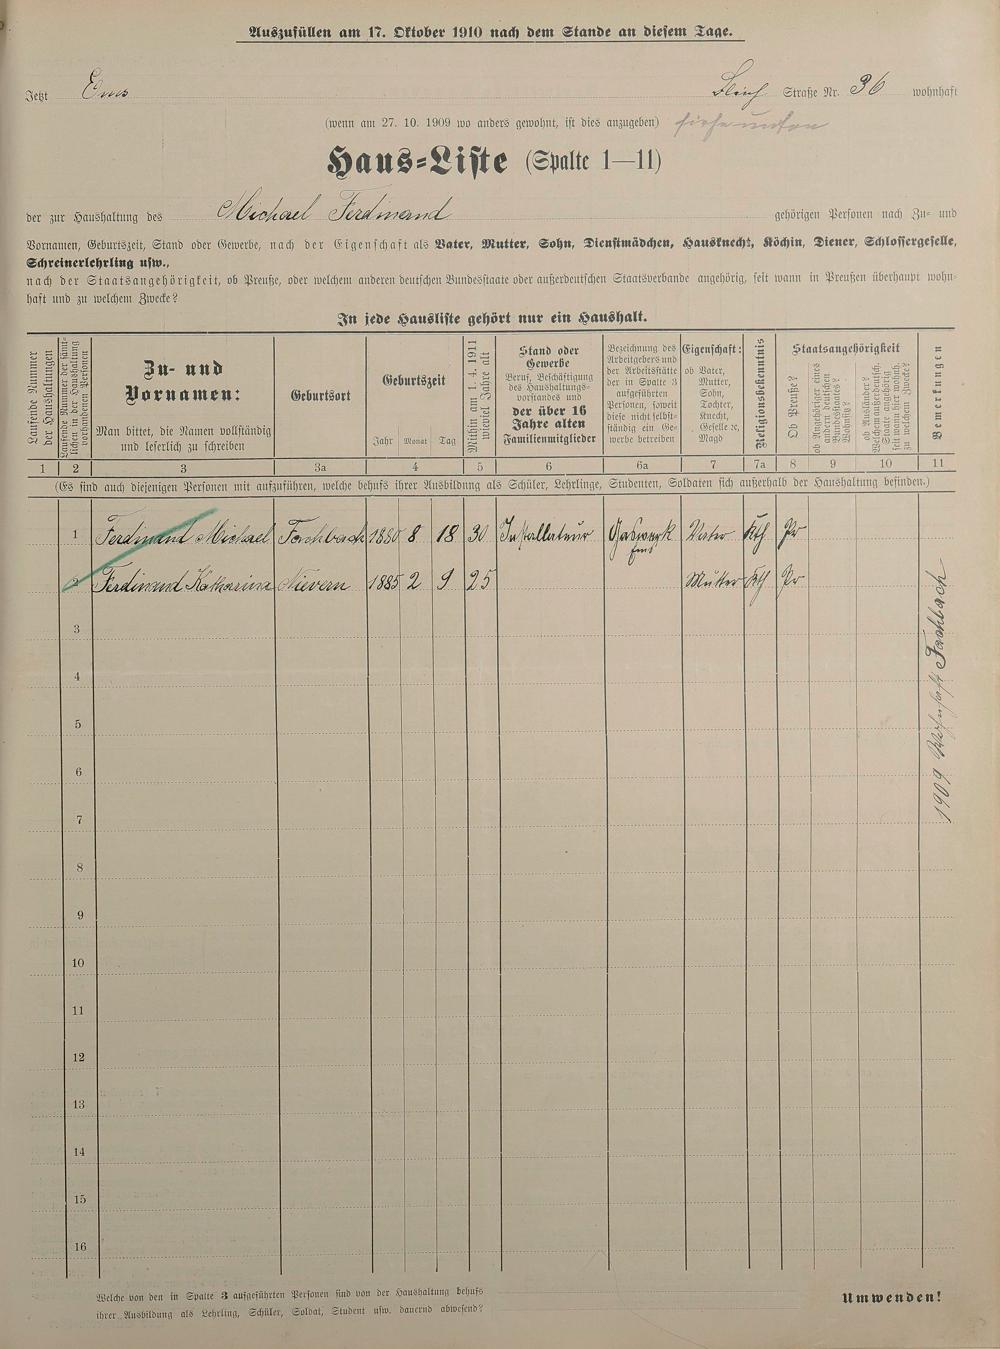 Auszufüllen am 17. Oktober 1910 nach dem Stande an diesem Tage.
Jetzt Ems Straße Nr. 36 wohnhaft
(wenn am 27. 10. 1909 wo anders gewohnt, ist dies anzugeben) siehe unten
Haus=Liste (Spalte 1—11)
der zur Haushaltung des Michael Ferdinand gehörigen Personen nach Zu- und
Vornamen, Geburtszeit, Stand oder Gewerbe, nach der Eigenschaft als Vater, Mutter, Sohn, Dienstmädchen, Hausknecht, Köchin, Diener, Schlossergeselle,
Schreinerlehrling usw.,
nach der Staatsangehörigkeit, ob Preuße, oder welchem anderen deutschen Bundesstaate oder außerdeutschen Staatsverbande angehörig, seit wann in Preußen überhaupt wohn-
haft und zu welchem Zwecke?
In jede Hausliste gehört nur ein Haushalt.
Laufende Nummer
der Haushaltungen
Laufende Nummer der sämt-
lichen in der Haushaltung
vorhandenen Personen
Zu- und
Vornamen:
Man bittet, die Namen vollständig
und leserlich zu schreiben
Geburtsort
Geburtszeit
Jahr Monat Tag
Mithin am 1. 4. 1911
wieviel Jahre alt
Stand oder
Gewerbe
Beruf, Beschäftigung
des Haushaltungs-
vorstandes und
der über 16
Jahre alten
Familienmitglieder
Bezeichnung des
Arbeitgebers und
der Arbeitsstätte
der in Spalte 3
aufgeführten
Personen, soweit
diese nicht selbst-
ständig ein Ge-
werbe betreiben
Eigenschaft:
ob Vater,
Mutter,
Sohn,
Tochter,
Knecht,
Geselle ꝛc,
Magd
Religionsbekenntnis
Staatsangehörigkeit
Ob Preuße?
ob Angehöriger eines
andern deutschen
Bundesstaates?
Wohnsitz?
ob Ausländer?
Welchem außerdeutsch.
Staate angehörig
seit wann hier wohnh.
zu welchem Zwecke?
Bemerkungen
1 2 3 3a 4 5 6 6a 7 7a 8 9 10 11
(Es sind auch diejenigen Personen mit aufzuführen, welche behufs ihrer Ausbildung als Schüler, Lehrlinge, Studenten, Soldaten sich außerhalb der Haushaltung befinden.)
1 Ferdinand Michael Fachbach 1880 8 18 30 Installateur Gaswerk Ems Vater Kth Pr
2 Ferdinand Katharina Nievern 1885 2 9 25 Mutter Kth Pr
3
4
5
6
7
8
9
10
11
12
13
14
15
16
1909 Wohnhaft Fachbach
Welche von den in Spalte 3 aufgeführten Personen sind von der Haushaltung behufs
ihrer Ausbildung als Lehrling, Schüler, Soldat, Student usw. dauernd abwesend?
Umwenden!